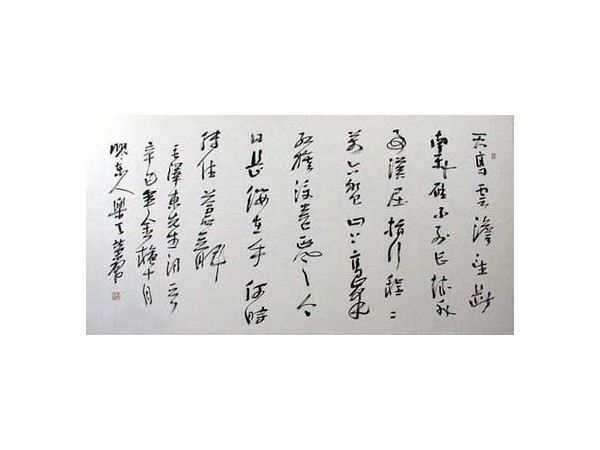 天高雲澹望斷
南飛雁不到長城非
好漢屈指行程二
萬六盤山上高峰
紅旗漫卷西風今
日長纓在手何時
縛住蒼龍
毛澤東先生詞
辛巳年金秋十月
膠東人